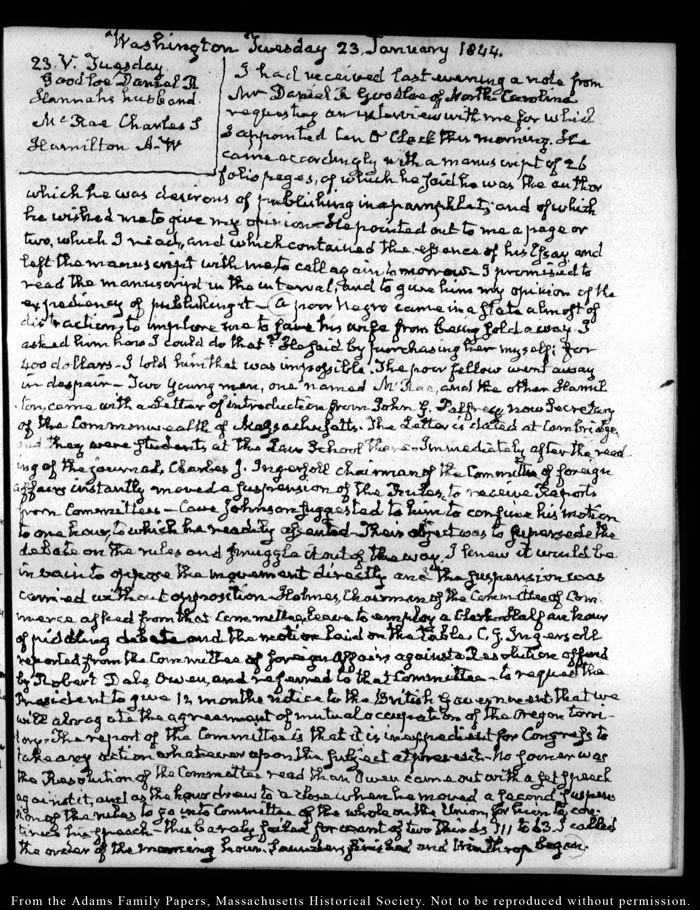 Washington Tuesday 23. January 1844.
23. V. Tuesday
Goodloe Daniel R
Hannah's husband.
McRae Charles S
Hamilton A. W
I had received last evening a note from
Mr Daniel R Goodloe of North-Carolina
requesting an interview with me for which
I appointed ten O'Clock this morning. He
came accordingly with a manuscript of 26
folio pages, of which he said he was the author
which he was desirous of publishing in a pamphlet; and of which
he wished me to give my opinion. He pointed out to me a page or
two, which I read, and which contained the essence of his Essay, and
left the manuscript with me, to call again tomorrow. I promised to
read the manuscript in the interval, and to give him my opinion of the
expediency of publishing it — A poor Negro came in a state almost of
distraction, to implore me to save his wife from being sold away. I
asked him how I could do that? He said by purchasing her myself; for
400 dollars — I told him that was impossible. The poor fellow went away
in despair — Two young men, one named McRae, and the other Hamil
ton, came with a Letter of introduction from John G. Palfrey now Secretary
of the Commonwealth of Massachusetts. The Letter is dated at Cambridge,
and they were students at the Law School there — Immediately after the read
ing of the journal, Charles J. Ingersoll chairman of the Committee of foreign
affairs instantly moved a suspension of the Rules, to receive Reports
from Committees — Cave Johnson suggested to him to confine his motion
to one hour, to which he readily assented — Their object was to supersede the
debate on the rules and smuggle it out of the way. I knew it would be
in vain to oppose the movement directly and the suspension was
carried without opposition — Holmes, Chairman of the Committee of Com
merce asked from that Committee, leave to employ a Clerk — Half an hour
of piddling debate and the motion laid on the table. C. J. Ingersoll
reported from the Committee of foreign Affairs against a Resolution offered
by Robert Dale Owen, and referred to that Committee — to request the
President to give 12 months notice to the British Government that we
will abrogate the agreement of mutual occupation of the Oregon terri
tory. The report of the Committee is that it is inexpedient for Congress to
take any action whatever upon the subject at present — No sooner was
the Resolution of the Committee read than Owen came out with a set speech
against it, and as the hour drew to a close when he moved a second suspen
sion of the rules to go into Committee of the whole on the Union, for him to con
tinue his speach — this barely failed for want of two thirds 111 to 63. I called
the order of the morning hour. Saunders finished and Winthrop began.
From the Adams Family Papers, Massachusetts Historical Society. Not to be reproduced without permission.